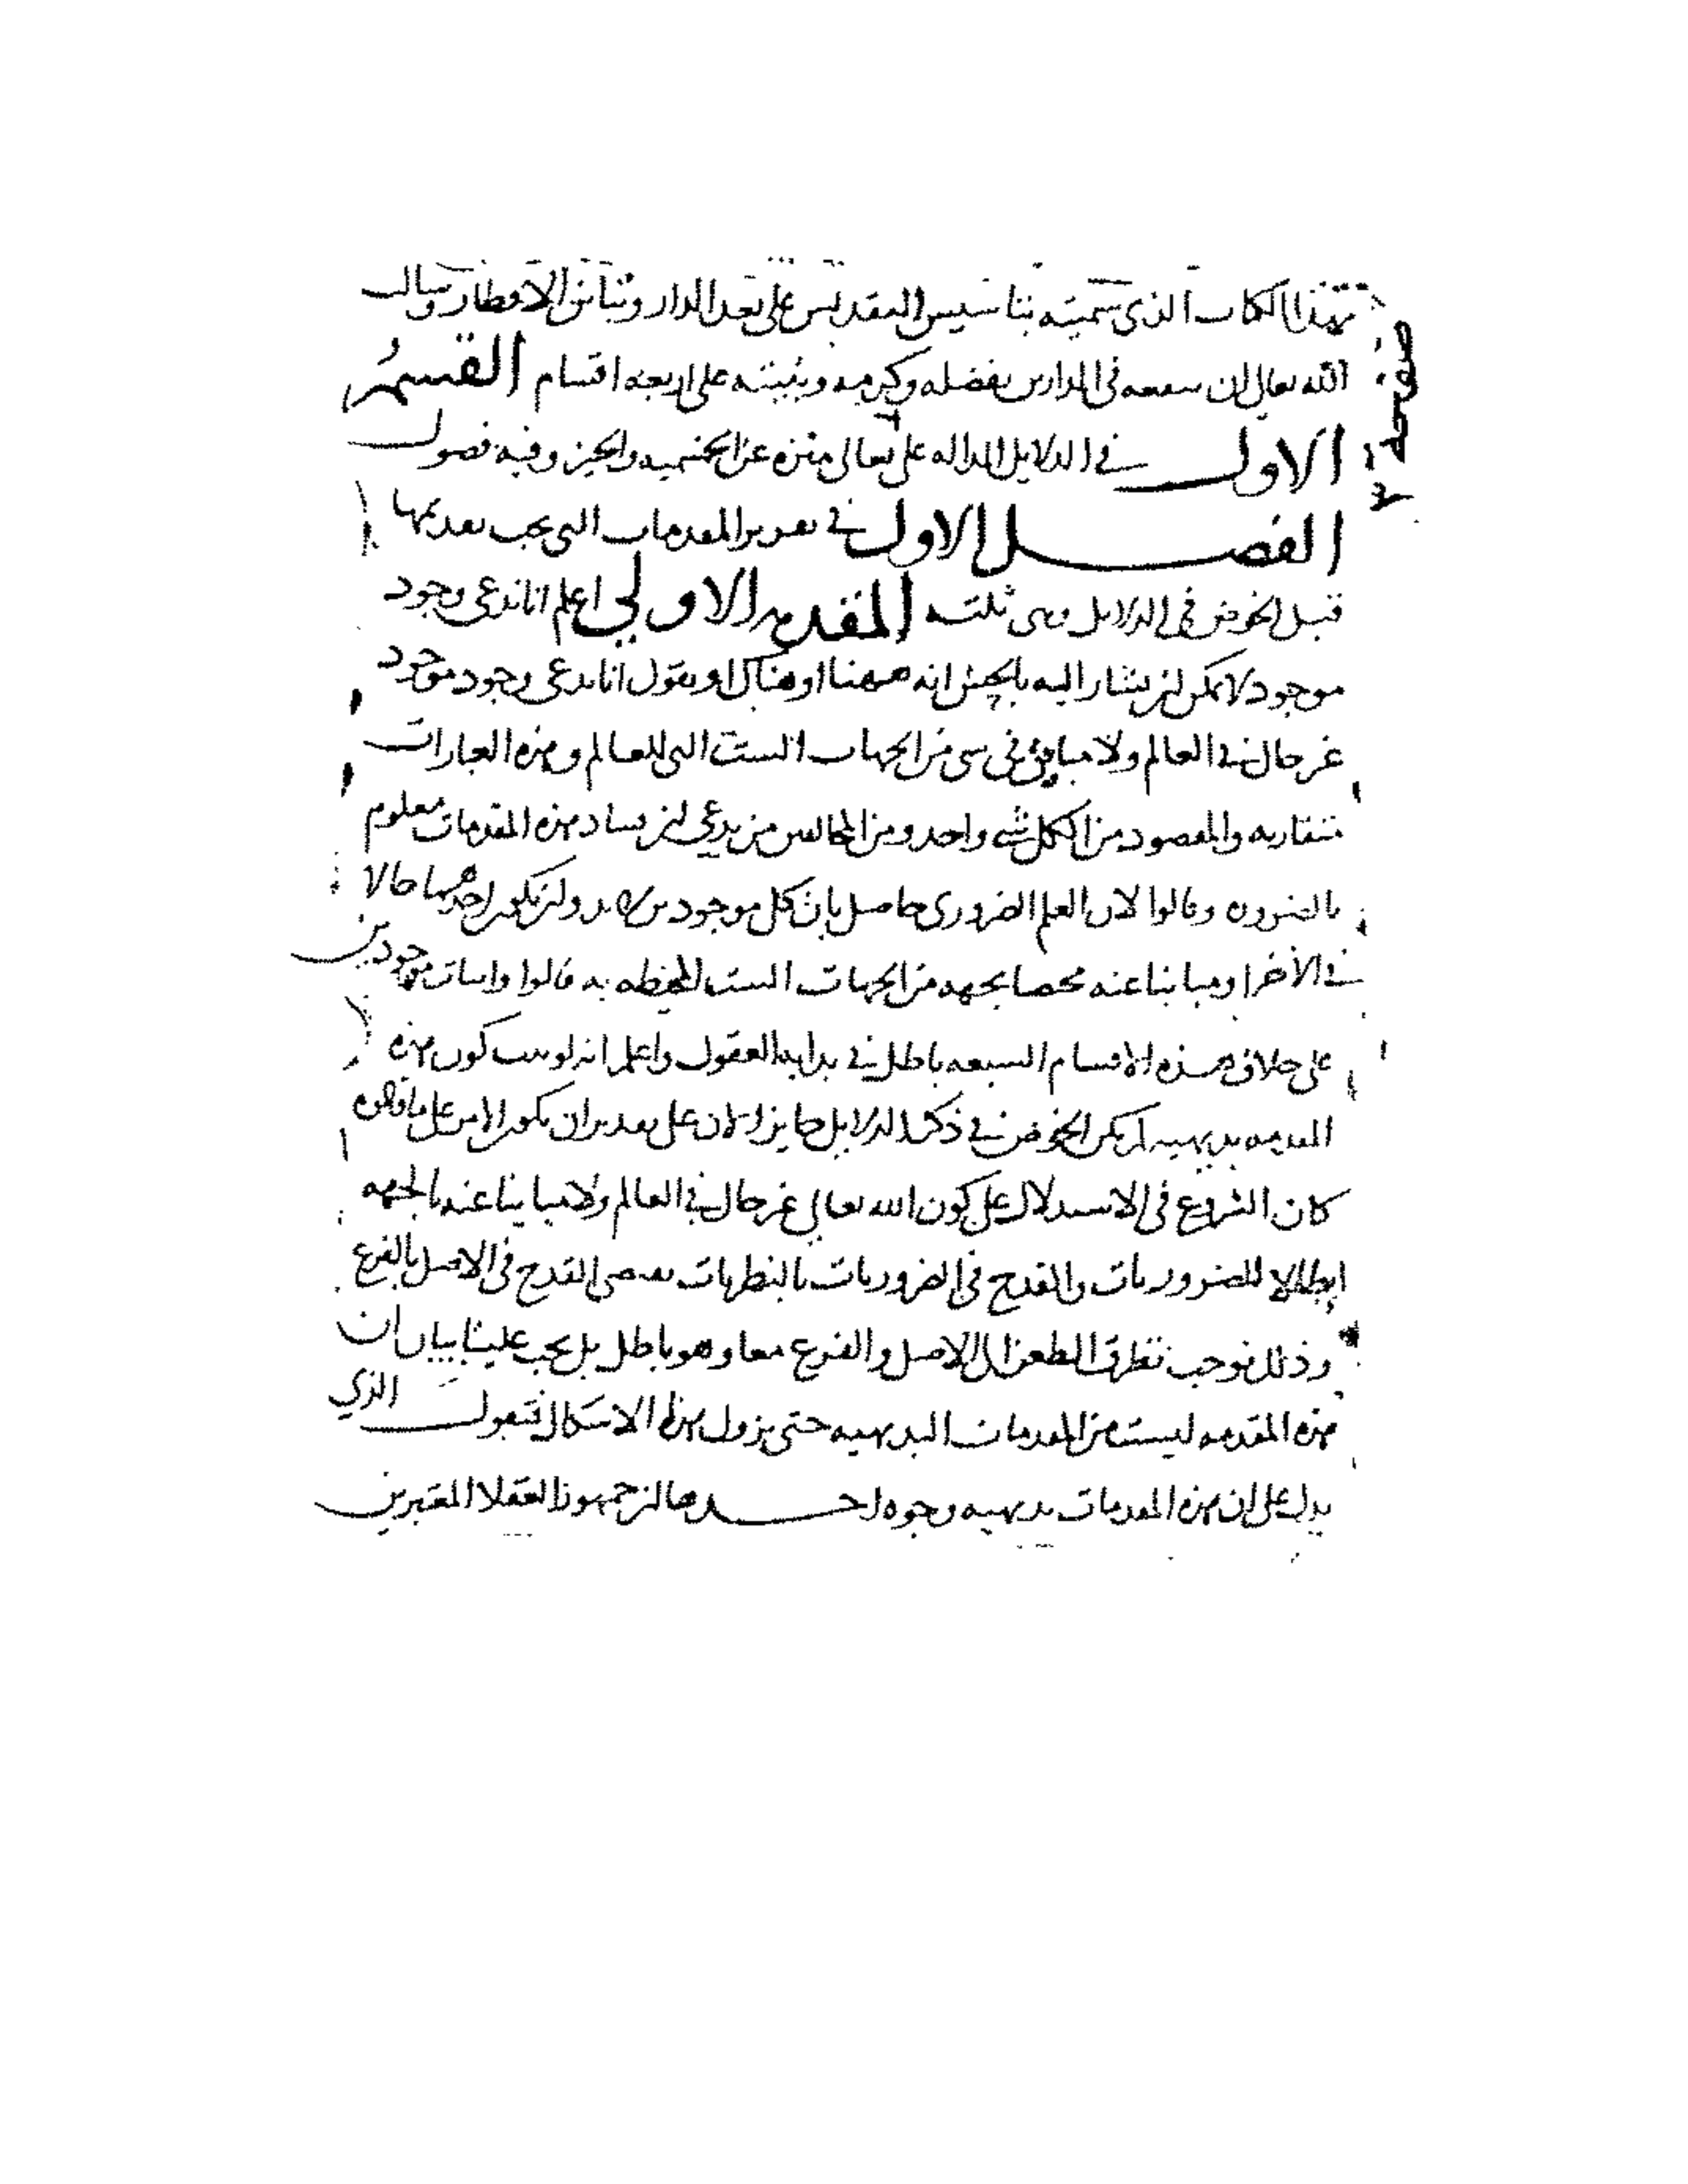 بهذا الكتاب الذي سميته بتاسيس التقديس على بعد الدار وتباين الاقطار وسالت
الله تعالى ان ينفعه في الدارين بفضله وكرمه ورتبته على اربعه اقسام القسمُ
الاول في الدلايل الداله على تعالى منزه عن الجسميه والحيز وفيه فصول
الفصل الاول في تقرير المقدمات التي يجب تقديمها
قبل الخوض في الدلايل وهي ثلثه المقدمه الاولي اعلم انا ندعى وجود
موجود لا يمكن ان يشار اليه بالحس انه ههنا او هناك او نقول انا ندعى وجود موجود
غير حال في العالم ولا مباين في شي من الجهات الست التي للعالم وهذه العبارات
متقاربه والمقصود من الكل شي واحد ومن المخالفين من يدعي ان فساد هذه المقدمات معلوم
بالضروره وقالوا لان العلم الضروري حاصل بان كل موجودين لابد وان يكون احدهما حالا
في الاخر او مباينا عنه مختصا بجهه من الجهات الست المحيطه به قالوا واثبات موجودين
على خلاف هذه الاقسام السبعه باطل في بدايه العقول واعلم انه لو ثبت كون هذه
المقدمه بديهيه لم يكن الخوض في ذكر الدلايل جايزا لان على تقدير ان يكون الامر على ما قالوه
كان الشروع في الاستدلال على كون الله تعالي غير حال في العالم ولا مباينا عنه بالجهه
ابطالا للضروريات والقدح في الضروريات بالنظريات يقتضى القدح في الاصل بالفرع
وذلك يوجب تطرق الطعن الى الاصل والفرع معا وهو باطل بل يجب علينا بيان ان
هذه المقدمه ليست من المقدمات البديهيه حتى يزول هذا الاشكال فنقول الذي
يدل على ان هذه المقدمات بديهيه وجوه احدها ان جمهور العقلا المعتبرين